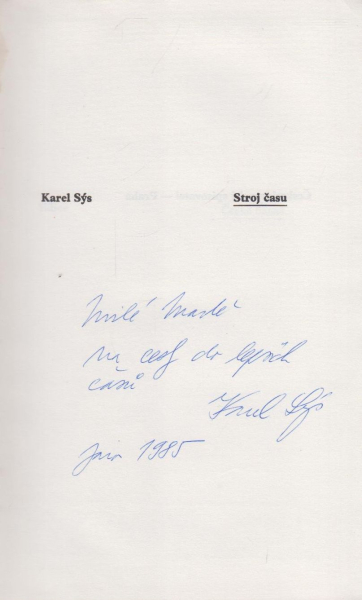 Karel Sýs Stroj času
Milé
na cesty do lepších
časů
Karel Sýs
1985